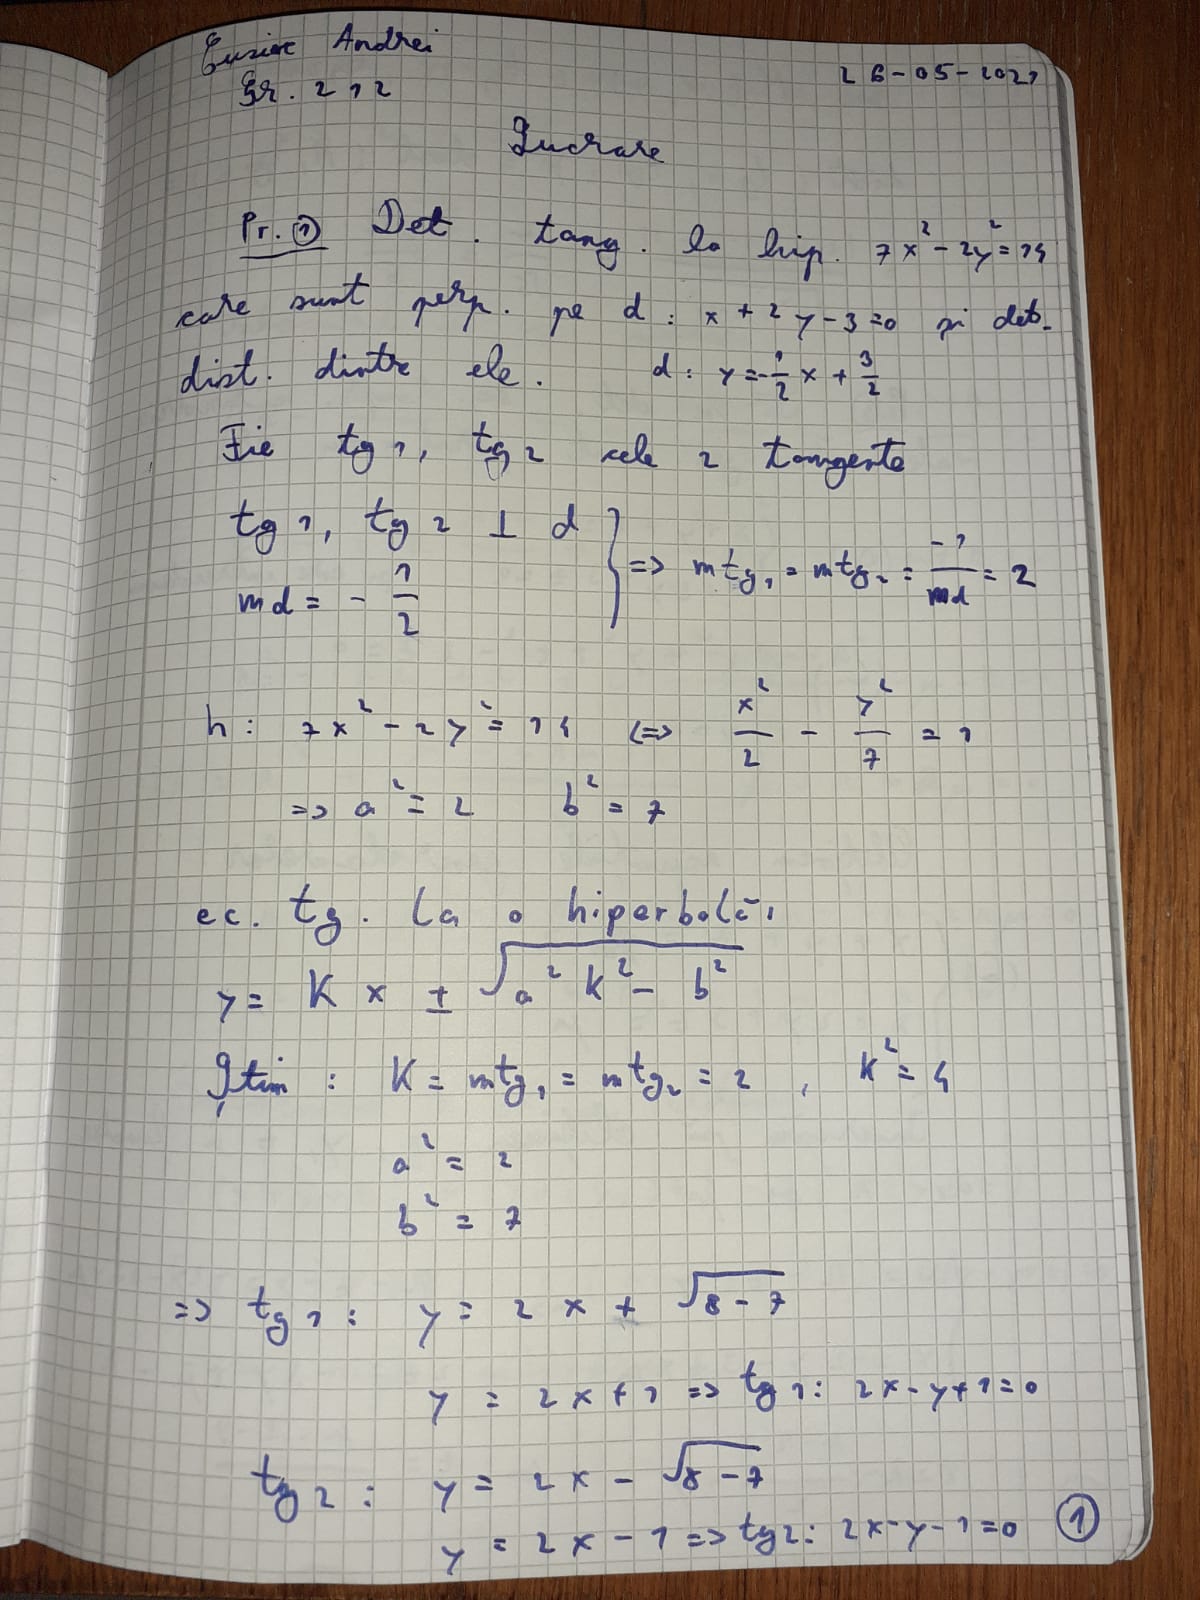 Andrei
Gr. 212
26-05-2021
Lucrare
Pr. ① Det. tang. la hip. 7x² - 2y² = 14
care sunt perp. pe d : x + 2y - 3 = 0 și det.
dist. dintre ele. d : y = -1/2 x + 3/2
Fie tg 1, tg 2 cele 2 tangente
tg 1, tg 2 ⊥ d
md = - 1/2 } => mtg₁ = mtg₂ = -1/md = 2
h : 7x² - 2y² = 14 <=> x²/2 - y²/7 = 1
=> a² = 2 b² = 7
ec. tg. la o hiperbolă:
y = K x ± √(a² k² - b²)
Știm : K = mtg₁ = mtg₂ = 2 , K² = 4
a² = 2
b² = 7
=> tg 1 : y = 2x + √(8 - 7)
y = 2x + 1 => tg 1 : 2x - y + 1 = 0
tg 2 : y = 2x - √(8 - 7)
y = 2x - 1 => tg 2 : 2x - y - 1 = 0 ①